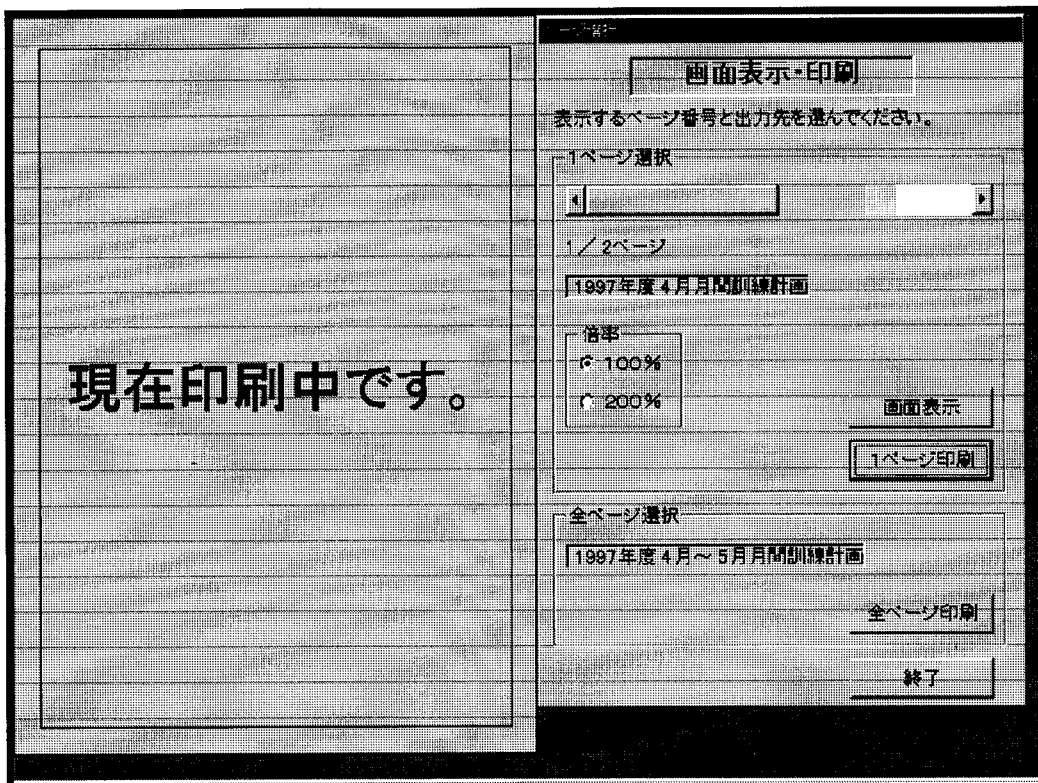 現在印刷中です。
画面表示・印刷
表示するページ番号と出力先を選んでください。
1ページ選択
1／2ページ
1997年度4月月間訓練計画
倍率
100%
200%
画面表示
1ページ印刷
全ページ選択
1997年度4月～5月月間訓練計画
全ページ印刷
終了